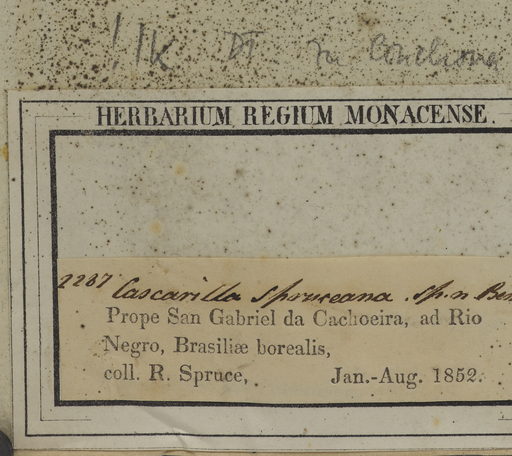 HERBARIUM REGIUM MONACENSE.
2287 Cascarilla Spruceana. sp. n Ben
Prope San Gabriel da Cachoeira, ad Rio
Negro, Brasiliæ borealis,
coll. R. Spruce, Jan.-Aug. 1852.